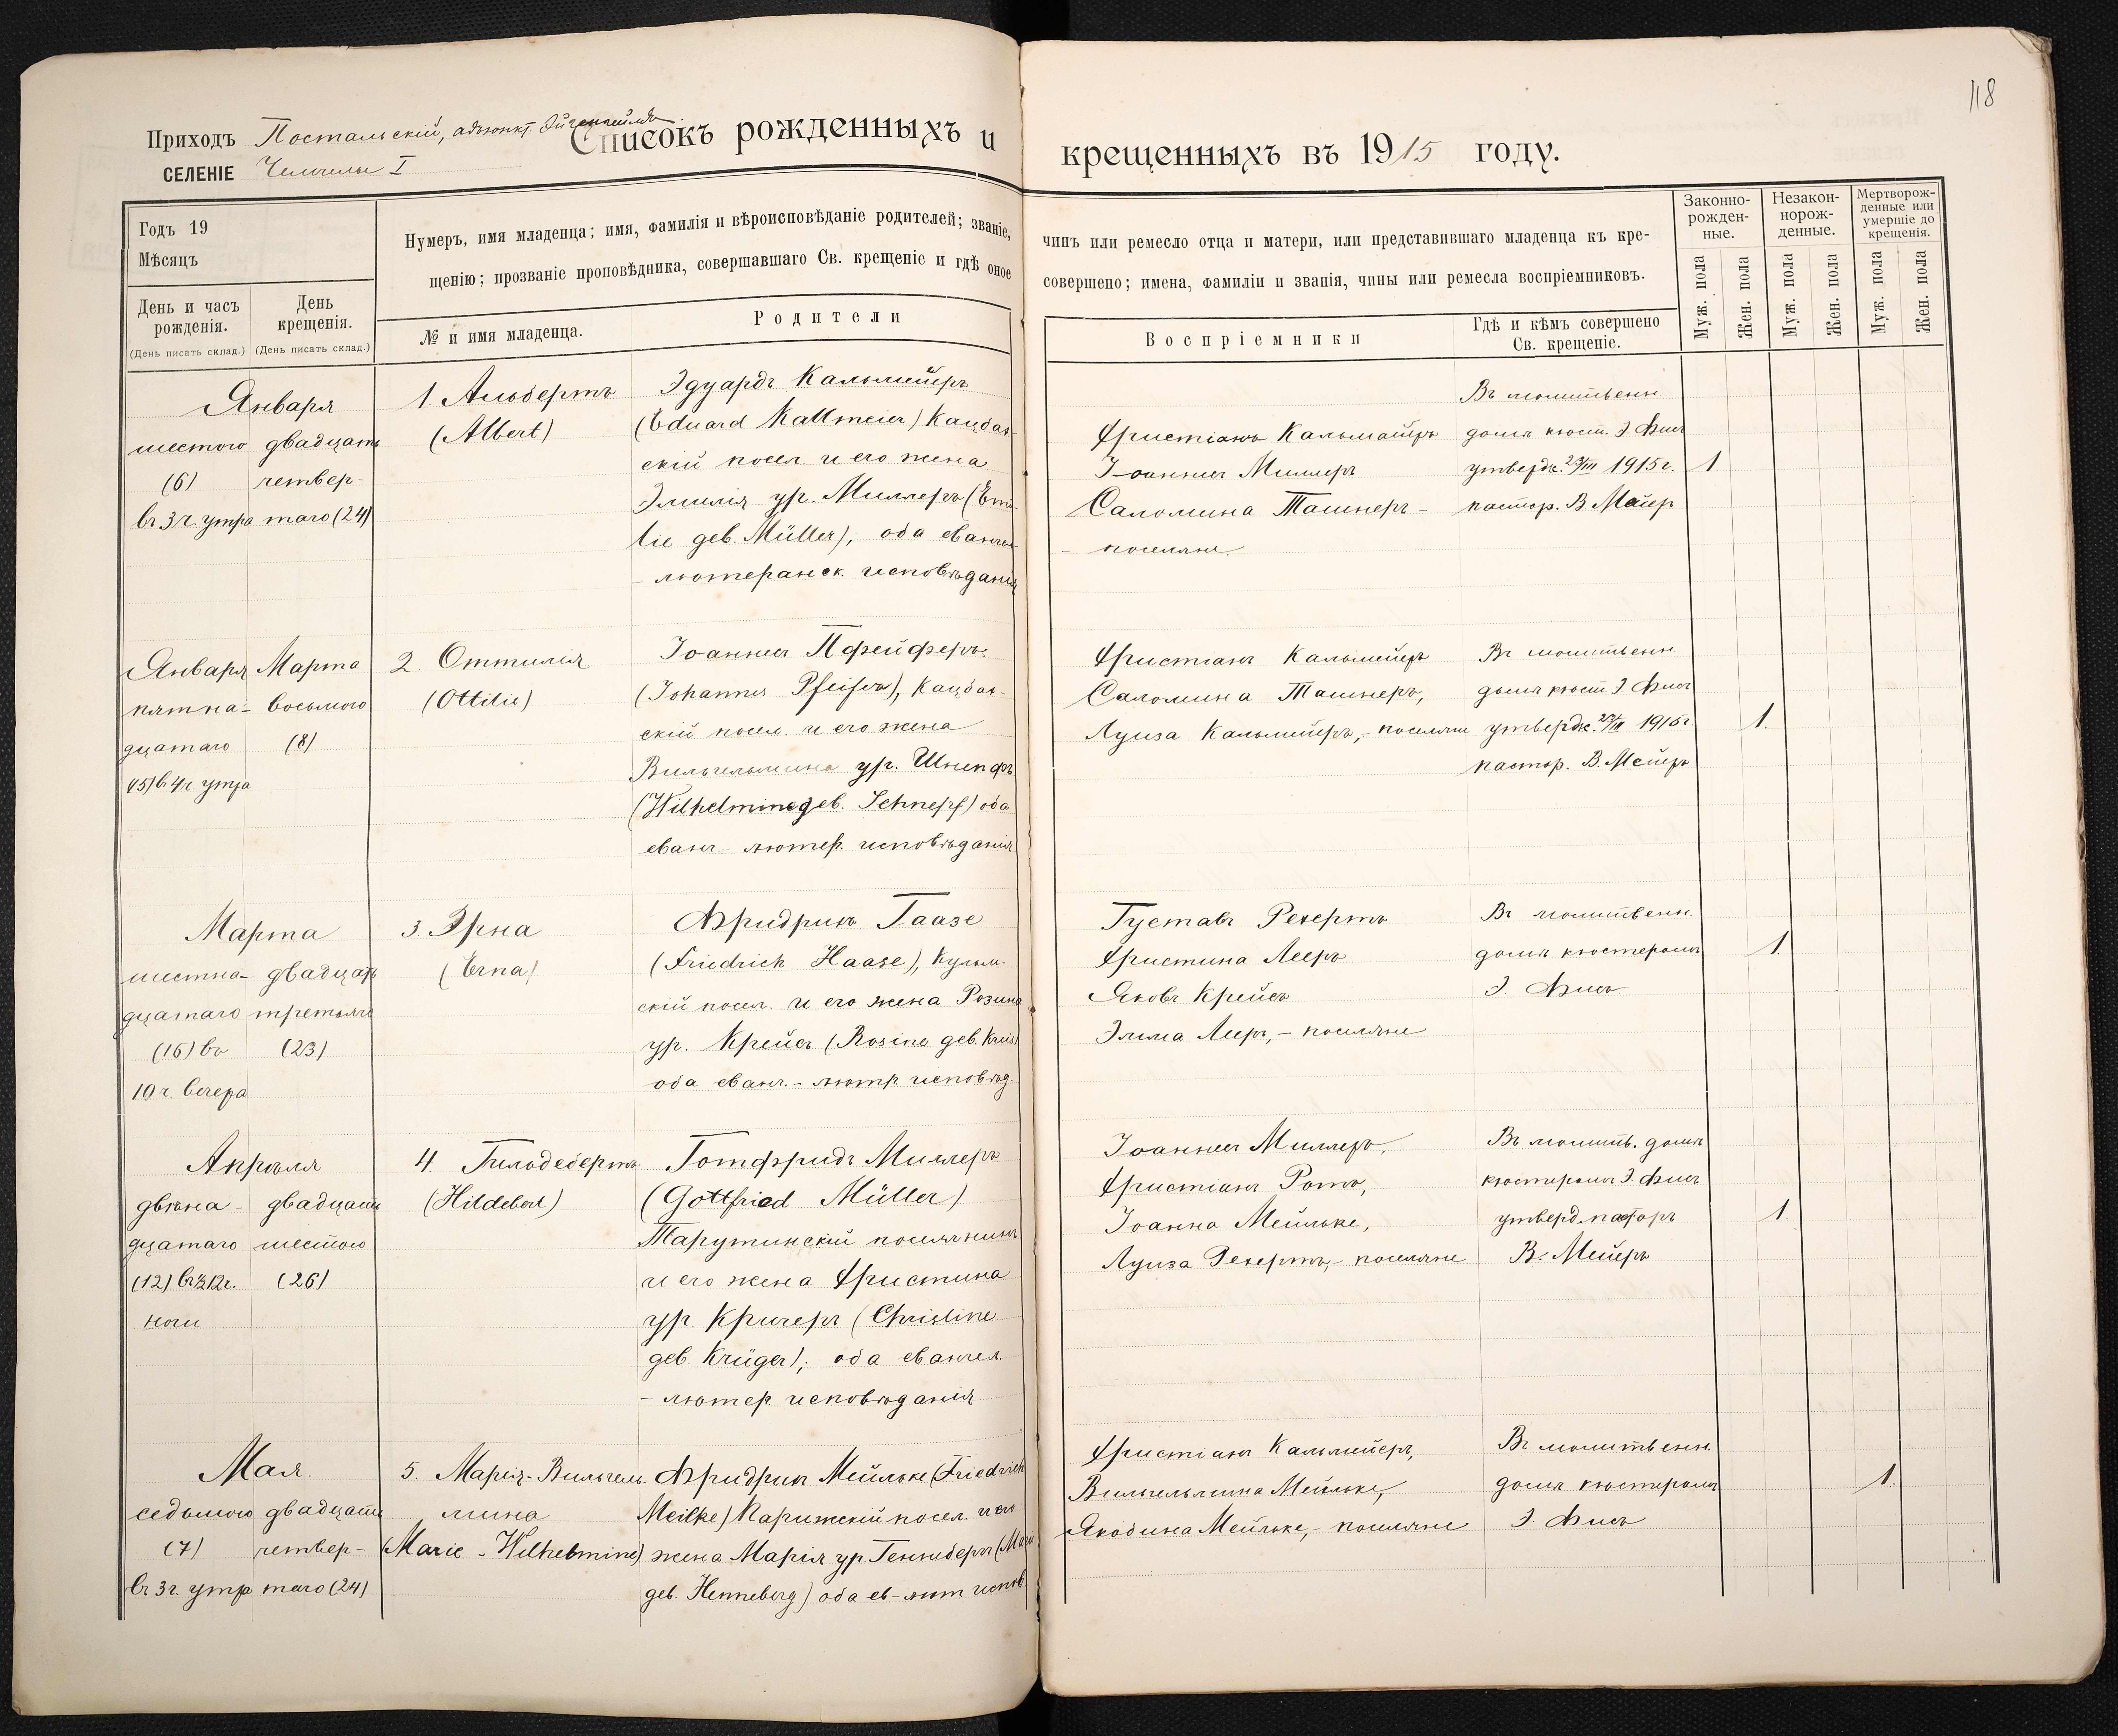 118
Приходъ Постальскій, адъюнкт. Эйгенгеймъ
Списокъ рожденныхъ и крещенныхъ въ 1915 году.
СЕЛЕНІЕ Челигелы I
Годъ 19
Мѣсяцъ
День и часъ рожденія.
(День писать склад.)
День крещенія.
(День писать склад.)
Нумеръ, имя младенца; имя, фамилія и вѣроисповѣданіе родителей; званіе, чинъ или ремесло отца и матери, или представившаго младенца къ кре-
щенію; прозваніе проповѣдника, совершавшаго Св. крещеніе и гдѣ оное совершено; имена, фамиліи и званія, чины или ремесла воспріемниковъ.
№ и имя младенца.
Родители
Воспріемники
Гдѣ и кѣмъ совершено
Св. крещеніе.
Законно-
рожден-
ные.
Незакон-
норож-
денные.
Мертворож-
денные или
умершіе до
крещенія.
Муж. пола
Жен. пола
Муж. пола
Жен. пола
Муж. пола
Жен. пола
Января
шестого
(6)
въ 3 ч. утра
двадцать
четвер-
таго (24)
1. Альбертъ
(Albert)
Эдуардъ Кальмейеръ
(Eduard Kallmeier) Кацбах-
скій посел. и его жена
Эмилія ур. Миллеръ (Emi-
lie geb. Müller); оба евангел.
- лютеранск. исповѣданія
Христіанъ Кальмайеръ
Іоаннесъ Миллеръ
Саломина Ташнеръ -
- поселяне.
Въ молитвенн.
домѣ кюст. Э. Фисъ
утвержд. 29/III 1915 г.
пастор. В Майер
1
Января
пятна-
дцатаго
(15) в 4 ч утра
Марта
восьмого
(8)
2. Оттилія
(Ottilie)
Іоаннесъ Пфейферъ.
(Johannes Pfeifer), Кацбах-
скій посел. и его жена
Вильгельмина ур. Шнепфъ
(Wilhelmine geb. Schnepf) оба
еванг.- лютер. исповѣданія
Христіанъ Кальмейеръ
Саломина Ташнеръ,
Луиза Кальмейеръ, - поселяне
Въ молитвенн.
домѣ кюст Э. Фисъ
утвержд. 29/III 1915 г.
пастор. В. Мейеръ
1.
Марта
шестна-
дцатаго
(16) въ
10 ч. вечера
двадцать
третьяго
(23)
3. Эрна
(Erna)
Фридрихъ Гаазе
(Friedrich Haase), Кульм-
скій посел. и его жена Розина
ур. Крейсъ (Rosine geb. Kreis)
оба еванг.- лютр. исповѣд.
Густавъ Рехертъ
Христина Лееръ
Яковъ Крейсъ
Эмма Лееръ, - поселяне
Въ молитвенн.
домѣ кюстеромъ
Э. Фисъ
1.
Апрѣля
двѣна-
дцатаго
(12) въ ½12 ч.
ночи
двадцать
шестого
(26)
4. Гильдебертъ
(Hildebert)
Готфридъ Миллеръ
(Gottfried Müller)
Тарутинскій поселянинъ
и его жена Христина
ур. Кригеръ (Christine
geb. Krüger); оба евангел.
- лютер. исповѣданія
Іоаннесъ Миллеръ,
Христіанъ Ротъ,
Іоанна Мейльке,
Луиза Рехертъ, - поселяне
Въ молитв. домѣ
кюстеромъ Э. Фисъ
утверд. пасторъ
В. Мейеръ
1.
Мая.
седьмого
(7)
въ 3 г. утра
двадцать
четвер-
таго (24)
5. Марія-Вильгель-
мина
(Marie - Wilhelmine)
Фридрихъ Мейльке (Friedrich
Meilke) Парижскій посел. и его
жена Марія ур. Геннебергъ (Marie
geb. Henneberg) оба ев-лют испов.
Христіанъ Кальмейеръ,
Вильгельмина Мейльке,
Якобина Мейльке, - поселяне
Въ молитвенн.
домѣ кюстеромъ
Э. Фисъ
1.